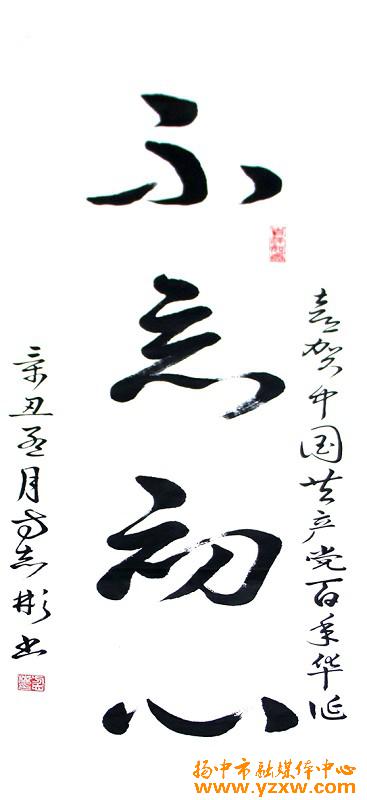 喜贺中国共产党百年华诞
不忘初心
辛丑月方志彬书
扬中市融媒体中心
www.yzxw.com